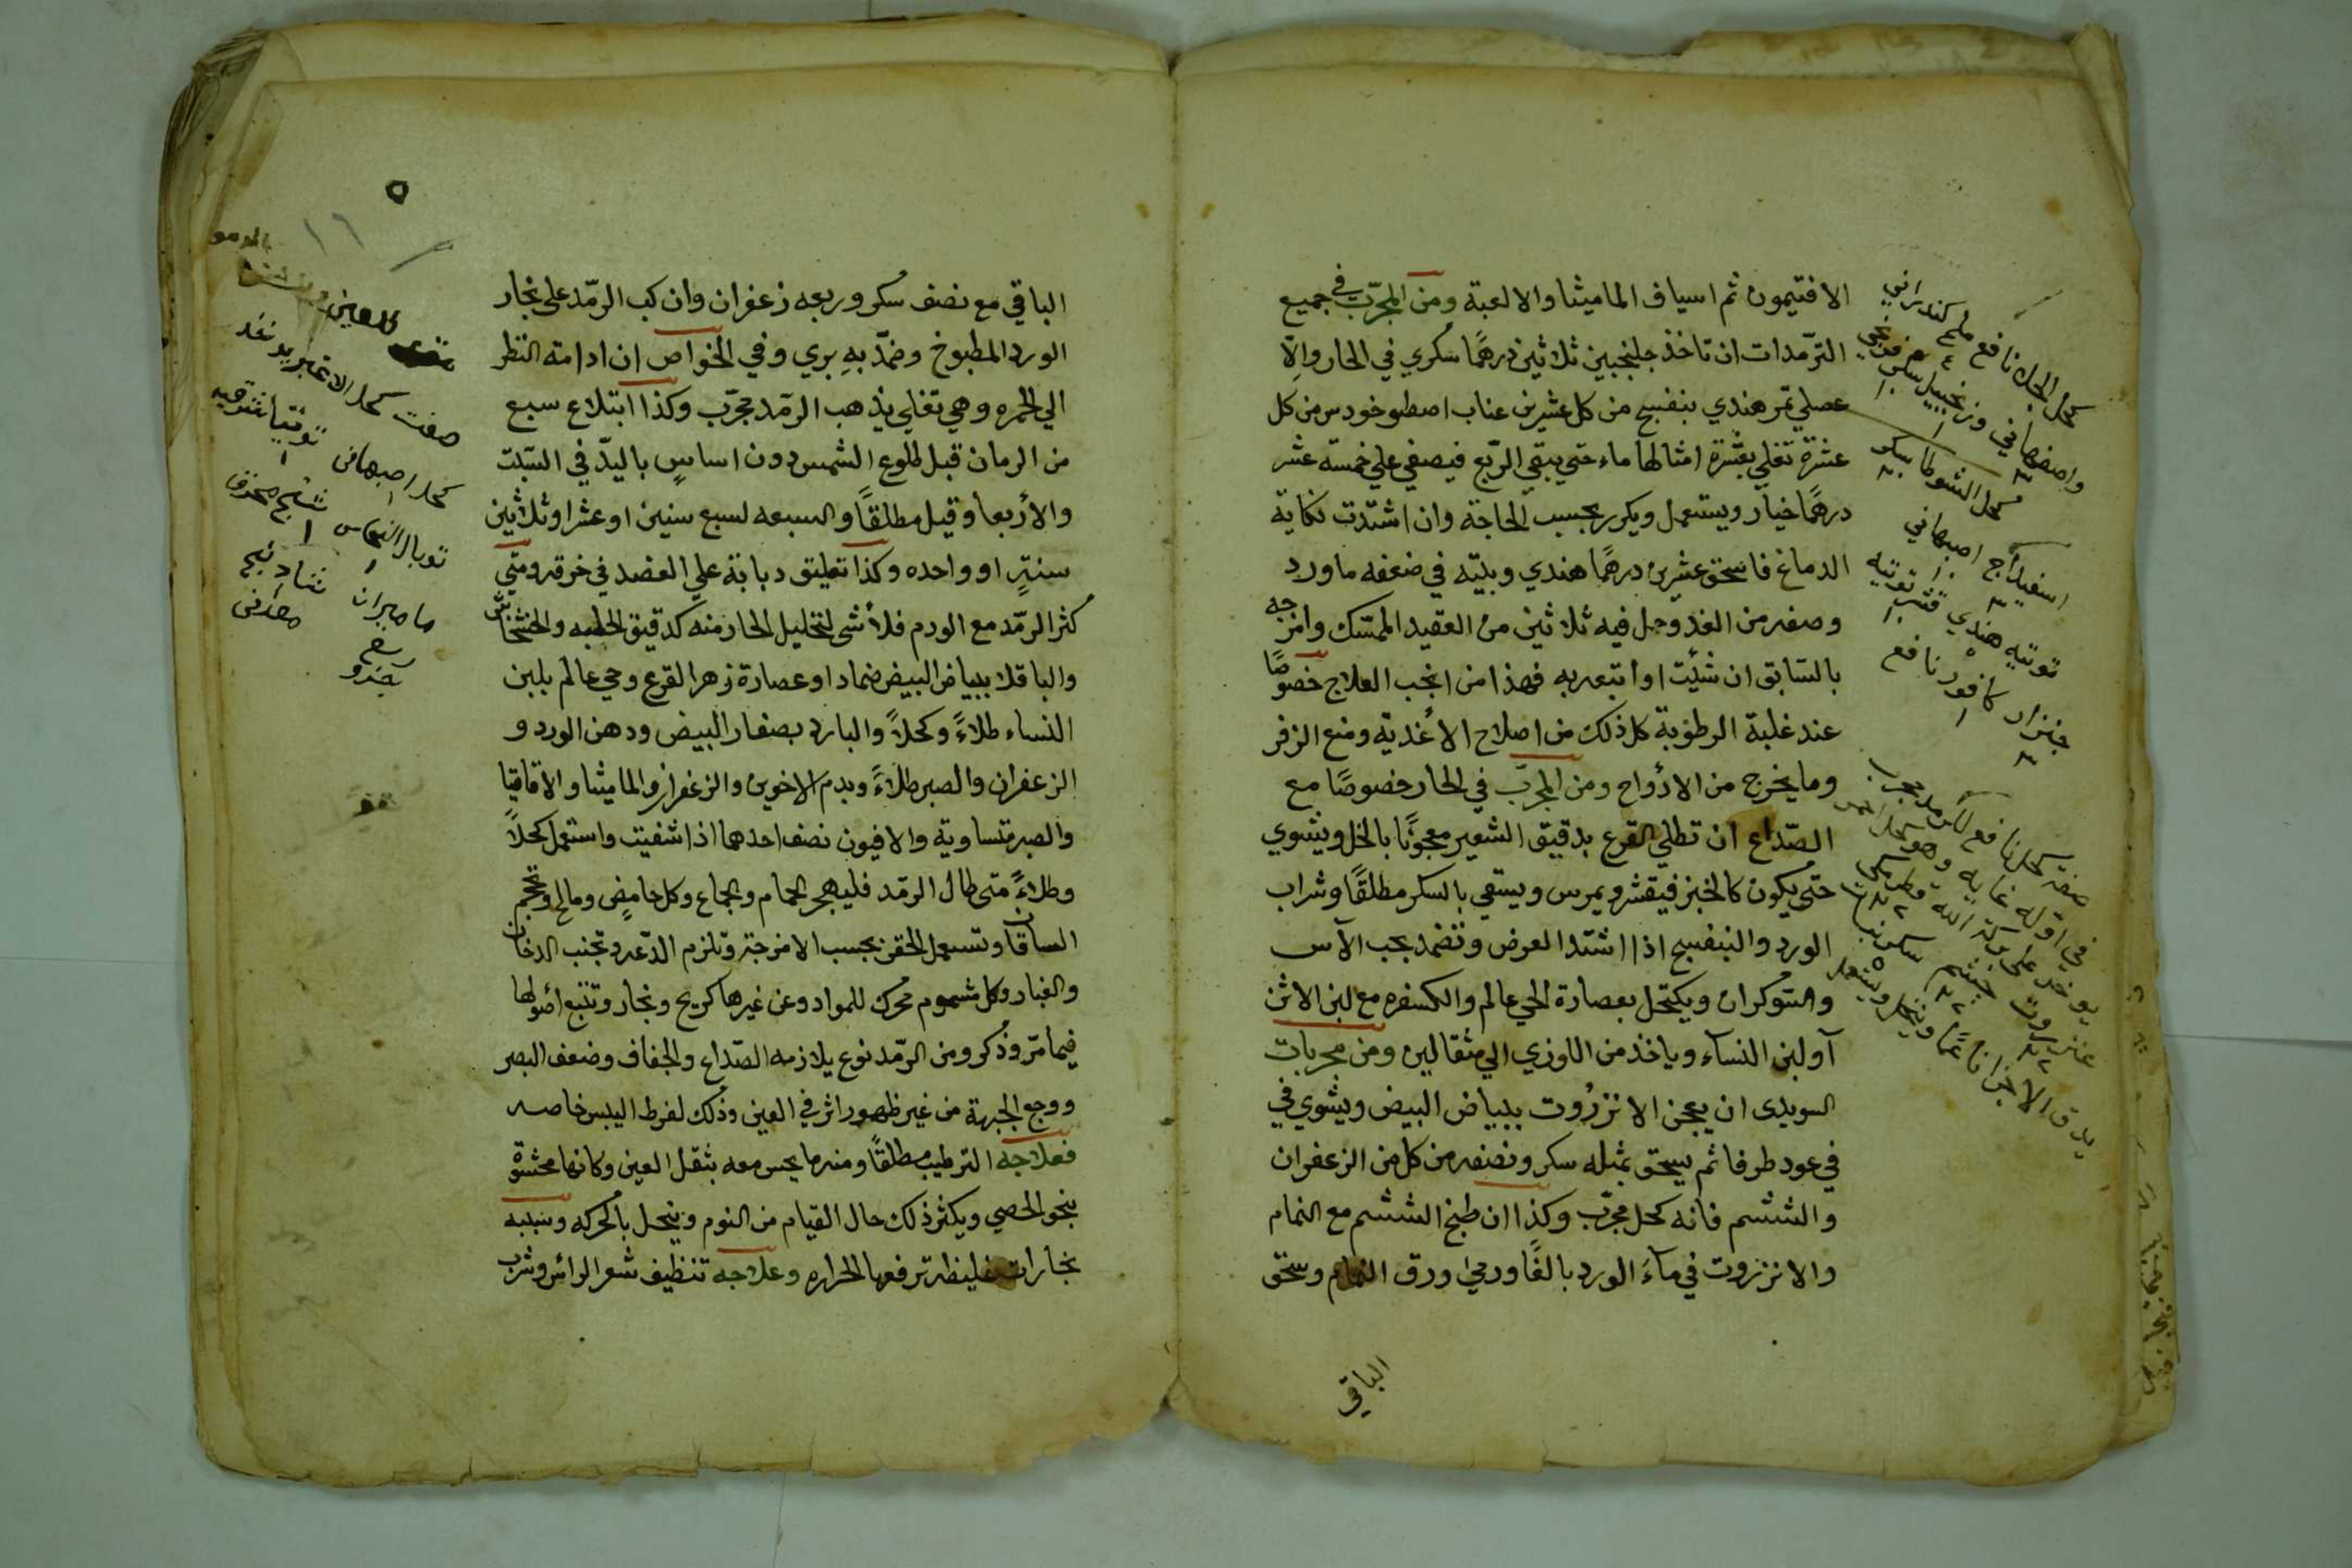 الافتيمون ثم اسياف الماميثا والالعبة ومن المجرّب في جميع
الترّمدات ان تاخذ جلنجبين ثلاثين درهمًا سكري في الحار والّا
عصلي تمر هندي بنفسج من كل عشرين عناب اصطوخودس من كل
عشرة تغلي بعشرة امثالها ماء حتي يبقي الرّبع فيصفي علي خمسة عشر
درهمًا خيار ويستعمل ويكرر بحسب الحاجة وان اشتدت نكاية
الدماغ فاسحق عشرين درهمًا هندي وبيّته في ضعفه ماورد
وصفه من الغد وحل فيه ثلاثين من العقيد الممسّك وامزجه
بالسّابق ان شئت او اتبعه به فهذا من انجب العلاج خصوصًا
عند غلبة الرطوبة كل ذلك من اصلاح الأغذية ومنع الزفر
وما يخرج من الأرواح ومن المجرّب في الحار خصوصًا مع
الصّداع ان تطلي القرع بدقيق الشعير معجونًا بالخل ويشوي
حتى يكون كالخبز فيقشر ويمرس ويستقي بالسكر مطلقًا وشراب
الورد والبنفسج اذا اشتد العرض وتضمد بحب الآس
والشوكران ويكتحل بعصارة الحي عالم والكسفره مع لبن الاتن
أو لبن النسآء وياخذ من اللوزي الي مثقالين ومن مجربات
السويدى ان يعجن الانزرُوت ببياض البيض ويشوي في
في عود طرفا ثم يسحق بمثله سكر ونصفه من كل من الزعفران
والششم فانه كحل مجرّب وكذا ان طبخ الششم مع النمام
والانزروت في مآء الورد بالغًا ورمي ورق النمام وسحق
الباقي
كحل الجلا نافع ملح كندراني
واصفهاني وزنجبيل سكر
كحل الشوطا سكر
اسفيداج اصبهاني
توتيه هندي قشر توتيه
جنزار كافور نافع
صفة كحل نافع للرمد مجرب
في اوله غايه وهو كحل احمر
يوخذ على بركة الله
عنزروت ششم سكر نبات
يدق الاجزا ناعمًا وينخل ويستعمل
٥
١٦
الباقي مع نصف سكر وربعه زعفران وان كب الرمّد على بخار
الورد المطبوخ وضمّد بهِ بري وفي الخواص ان ادامته النظر
الي الخمره وهي تغلي يذهب الرمّد مجرّب وكذا ابتلاع سبع
من الرمان قبل طلوع الشمس دون اساسٍ باليدّ في السّبت
والأربعا وقيل مطلقًا والسبعه لسبع سنين او عشرا وثلاثين
سنةٍ او واحده وكذا تعليق دبابة علي العضد في خرقه ومتي
كثر الرمّد مع الورم فلا شى لتخليل الحار منه كدقيق الحلبه والخشخاش
والباقلا ببياض البيض ضمادا وعصارة زهر القرع وحي عالم بلبن
النساء طلاءً وكحلاً والبارد بصفار البيض ودهن الورد و
الزعفران والصبر طلاءً وبدم الاخوين والزعفران والماميثا والاقاقيا
والصبر متساوية والافيون نصف احدهما اذا شفيت واستعمل كحلاً
وطلاءً متى طال الرمّد فليهجر الحمام والجماع وكل حامض ومالح وتحجم
الساقان وتسعمل الحقن بحسب الامزجة وتلزم الدّعه وتجنب الدخان
والغبار وكل مشموم محرك للمواد وعن غيرها كريح وبخار وتتبع أصولها
فيما مرّ وذكر ومن الرمّد نوع يلازمه الصّداع والجفاف وضعف البصر
ووجع الجبهة من غير ظهور اثر في العين وذلك لفرط اليبس خاصه
فعلاجه الترطيب مطلقًا ومنه ما يحس معه بثقل العين وكانها محشوّة
بنحو الحصي ويكثر ذلك حال القيام من النوم وينحل بالحركه وسببه
بخارات غليظه ترفعها الحراره وعلاجه تنظيف شعر الرائس وشرب
صفت كحل الاغبر
كحل اصبهانى توتيا
توبال النحاس
ماميران شادنج
معدنى